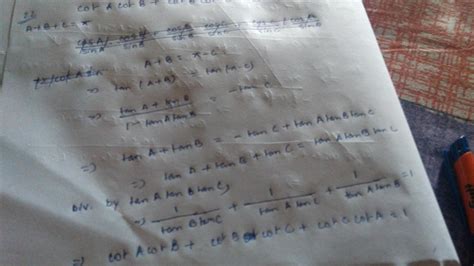 cot A cot B + cot B cot
A+B+C = π
A+B = π-C
⇒ tan (A+B) = tan (π-C)
⇒ tan A + tan B / 1 - tan A tan B = - tan C
⇒ tan A + tan B = - tan C + tan A tan B tan C
⇒ tan A + tan B + tan C = tan A tan B tan C
by tan A tan B tan C,
⇒ 1/tan B tan C + 1/tan A tan C + 1/tan A tan B = 1
⇒ cot A cot B + cot B cot C + cot C cot A = 1